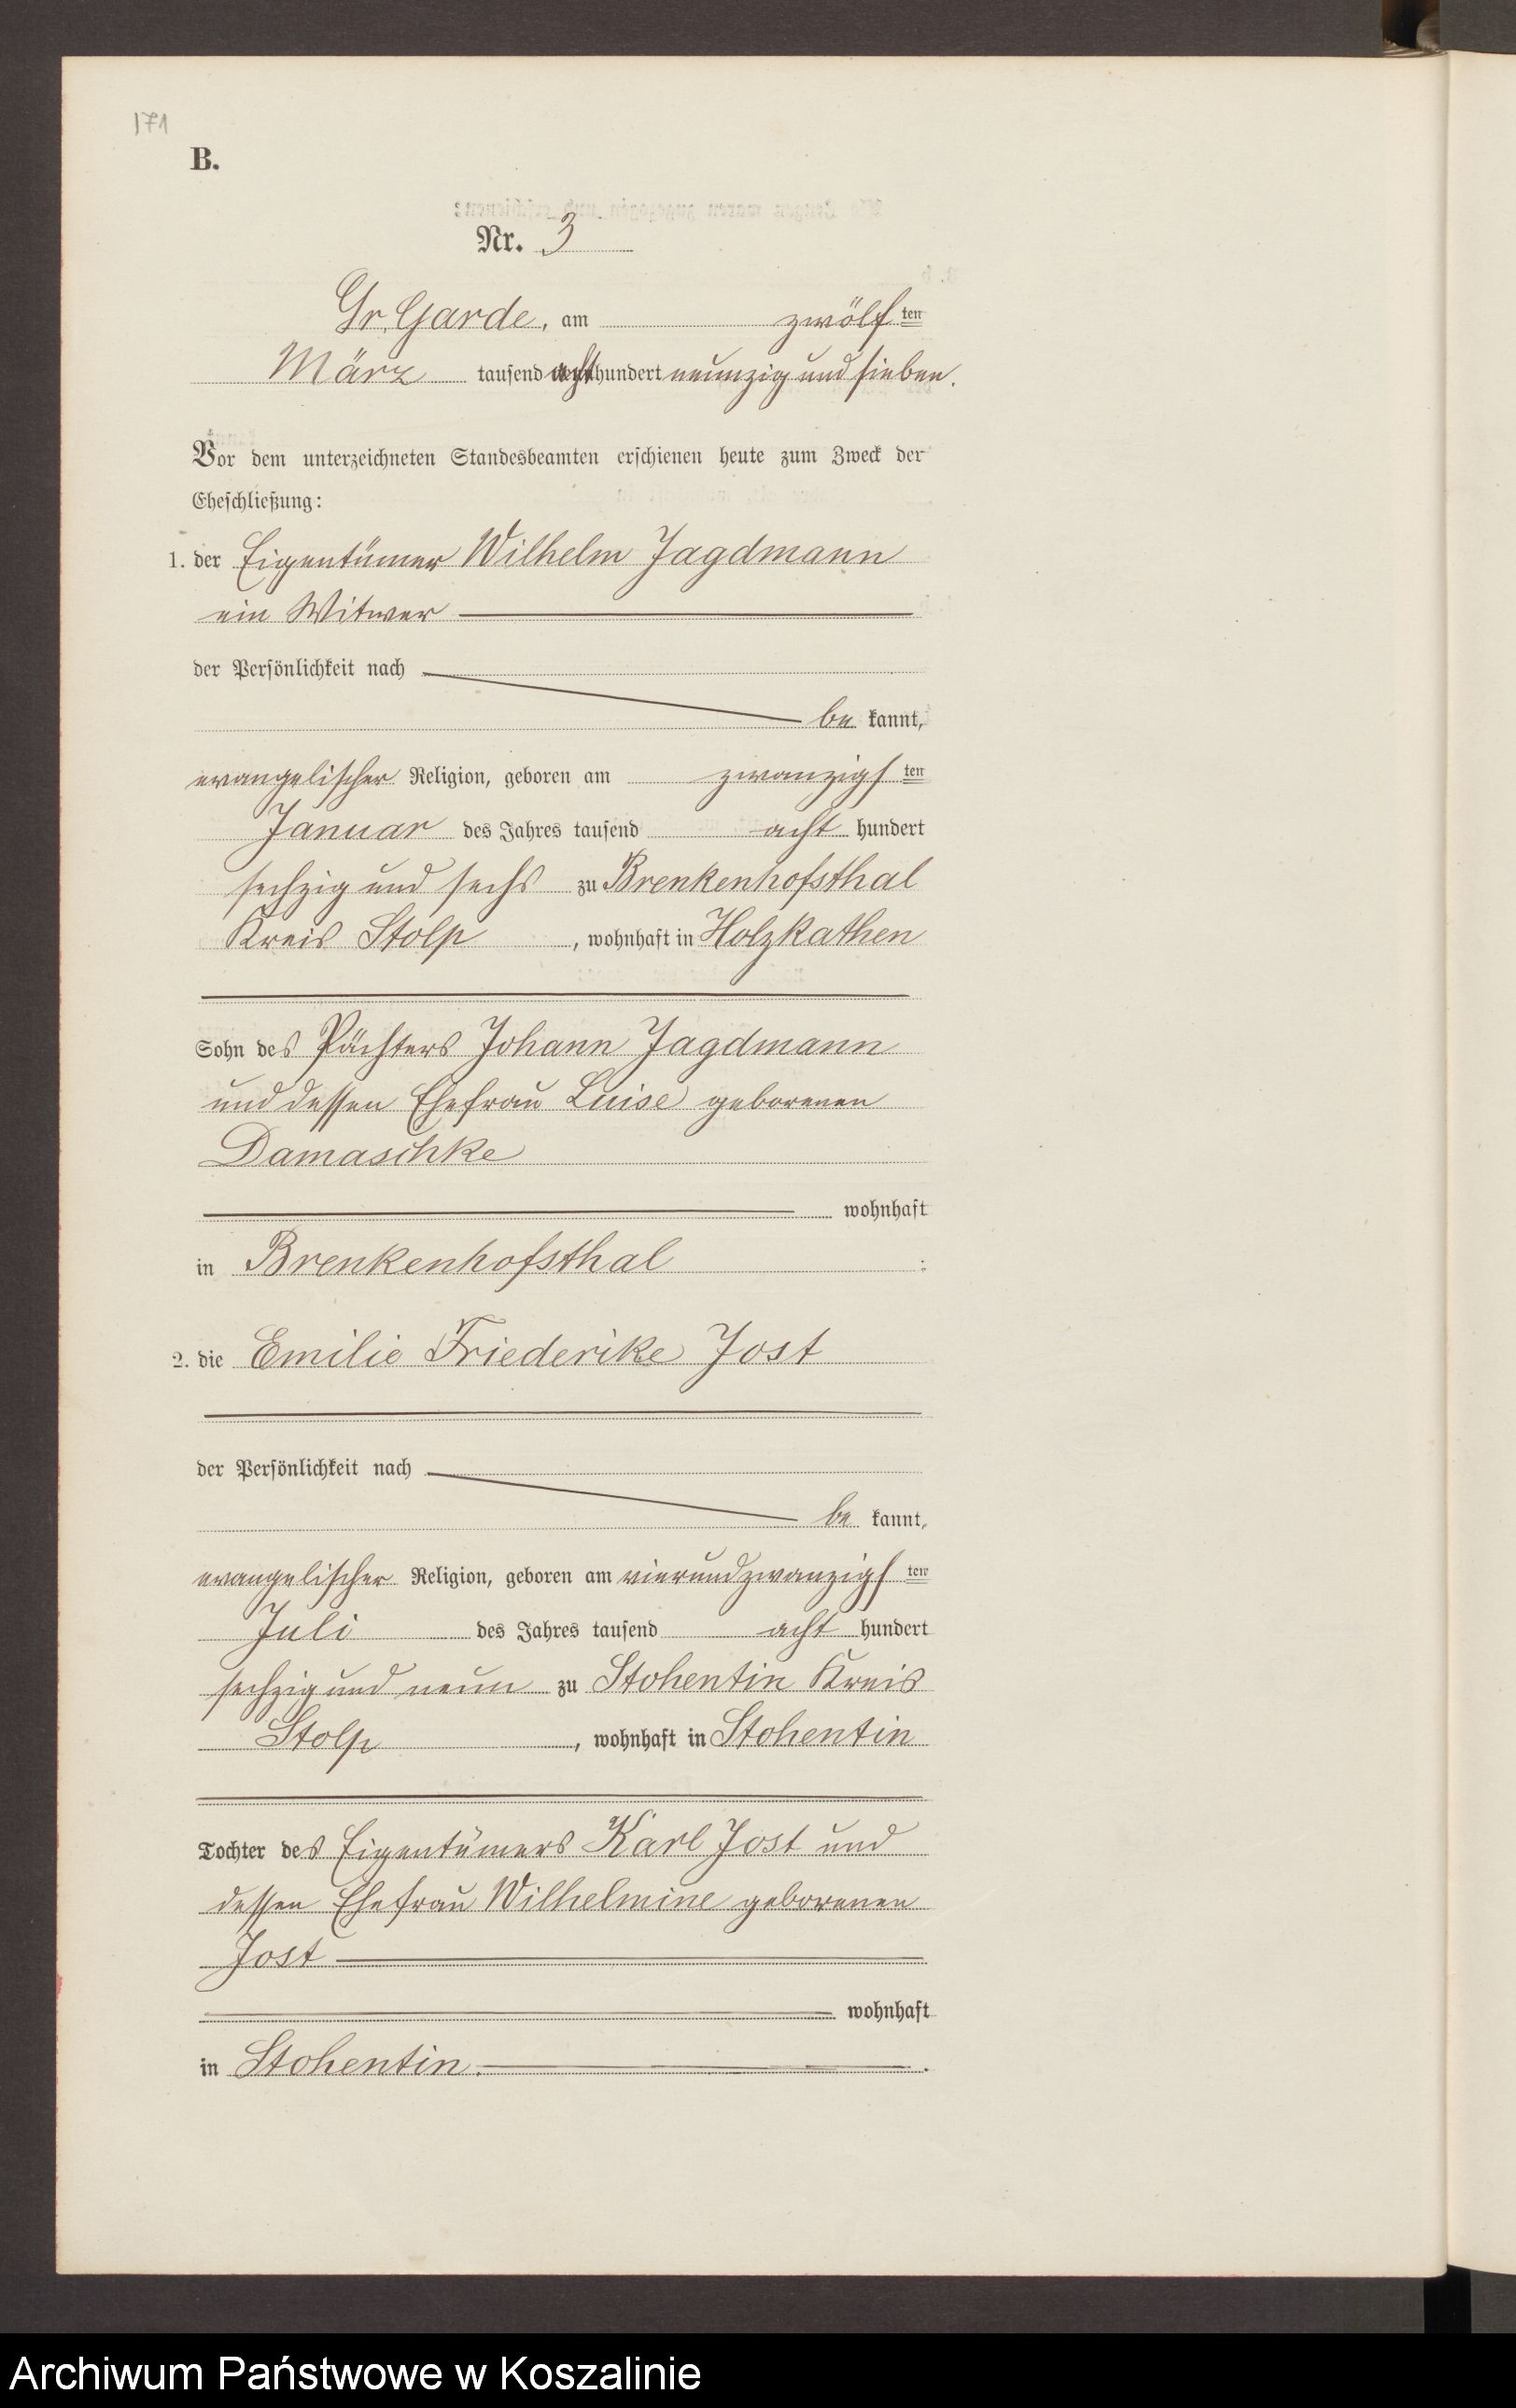 171
B.
Nr. 3
Gr. Garde, am zwölften
März tausend achthundert neunzig und sieben.
Vor dem unterzeichneten Standesbeamten erschienen heute zum Zweck der
Eheschließung:
1. der Eigentümer Wilhelm Jagdmann
ein Witwer
der Persönlichkeit nach
be kannt,
evangelischer Religion, geboren am zwanzigsten
Januar des Jahres tausend acht hundert
sechzig und sechs zu Brenkenhofsthal
Kreis Stolp, wohnhaft in Holzkathen
Sohn des Pächters Johann Jagdmann
und dessen Ehefrau Luise geborenen
Damaschke
wohnhaft
in Brenkenhofsthal :
2. die Emilie Friederike Jost
der Persönlichkeit nach
be kannt,
evangelischer Religion, geboren am vierundzwanzigsten
Juli des Jahres tausend acht hundert
sechzig und neun zu Stohentin Kreis
Stolp, wohnhaft in Stohentin
Tochter des Eigentümers Karl Jost und
dessen Ehefrau Wilhelmine geborenen
Jost
wohnhaft
in Stohentin.
Archiwum Państwowe w Koszalinie